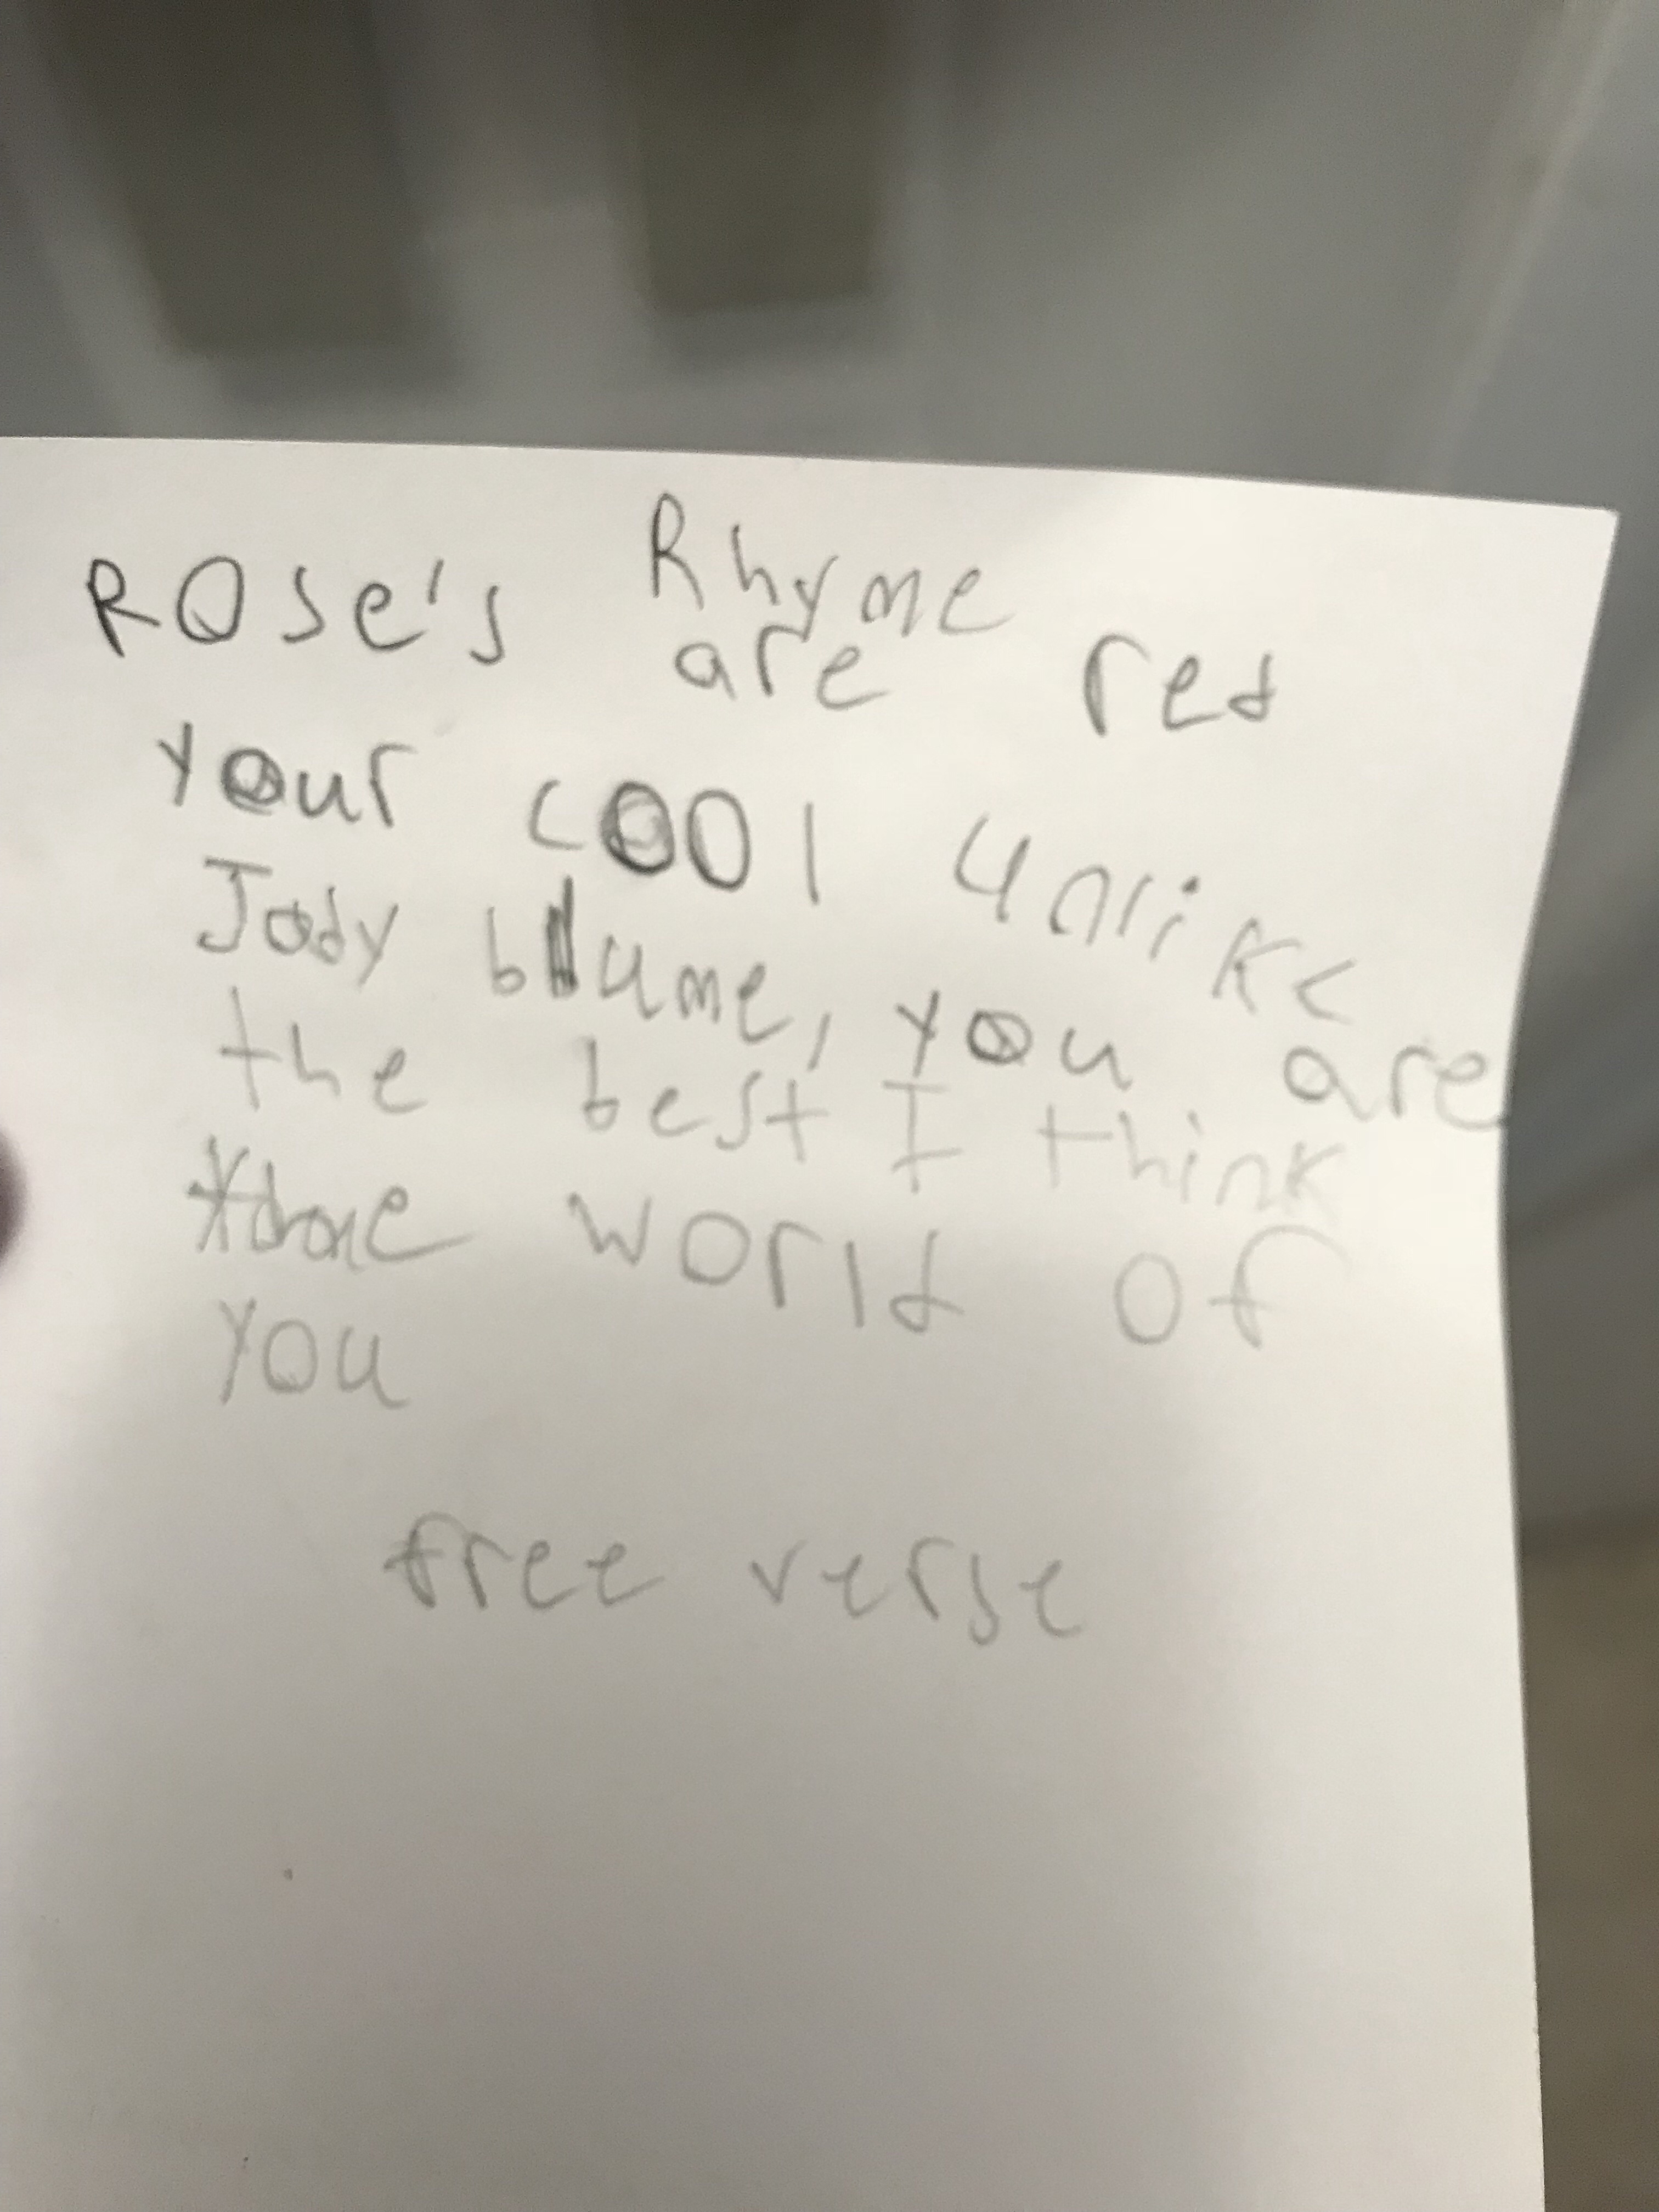 Rhyme
ROse's are red
your cOOl unlike
Jody blume, you are
the best I think
the world of
you
free verse